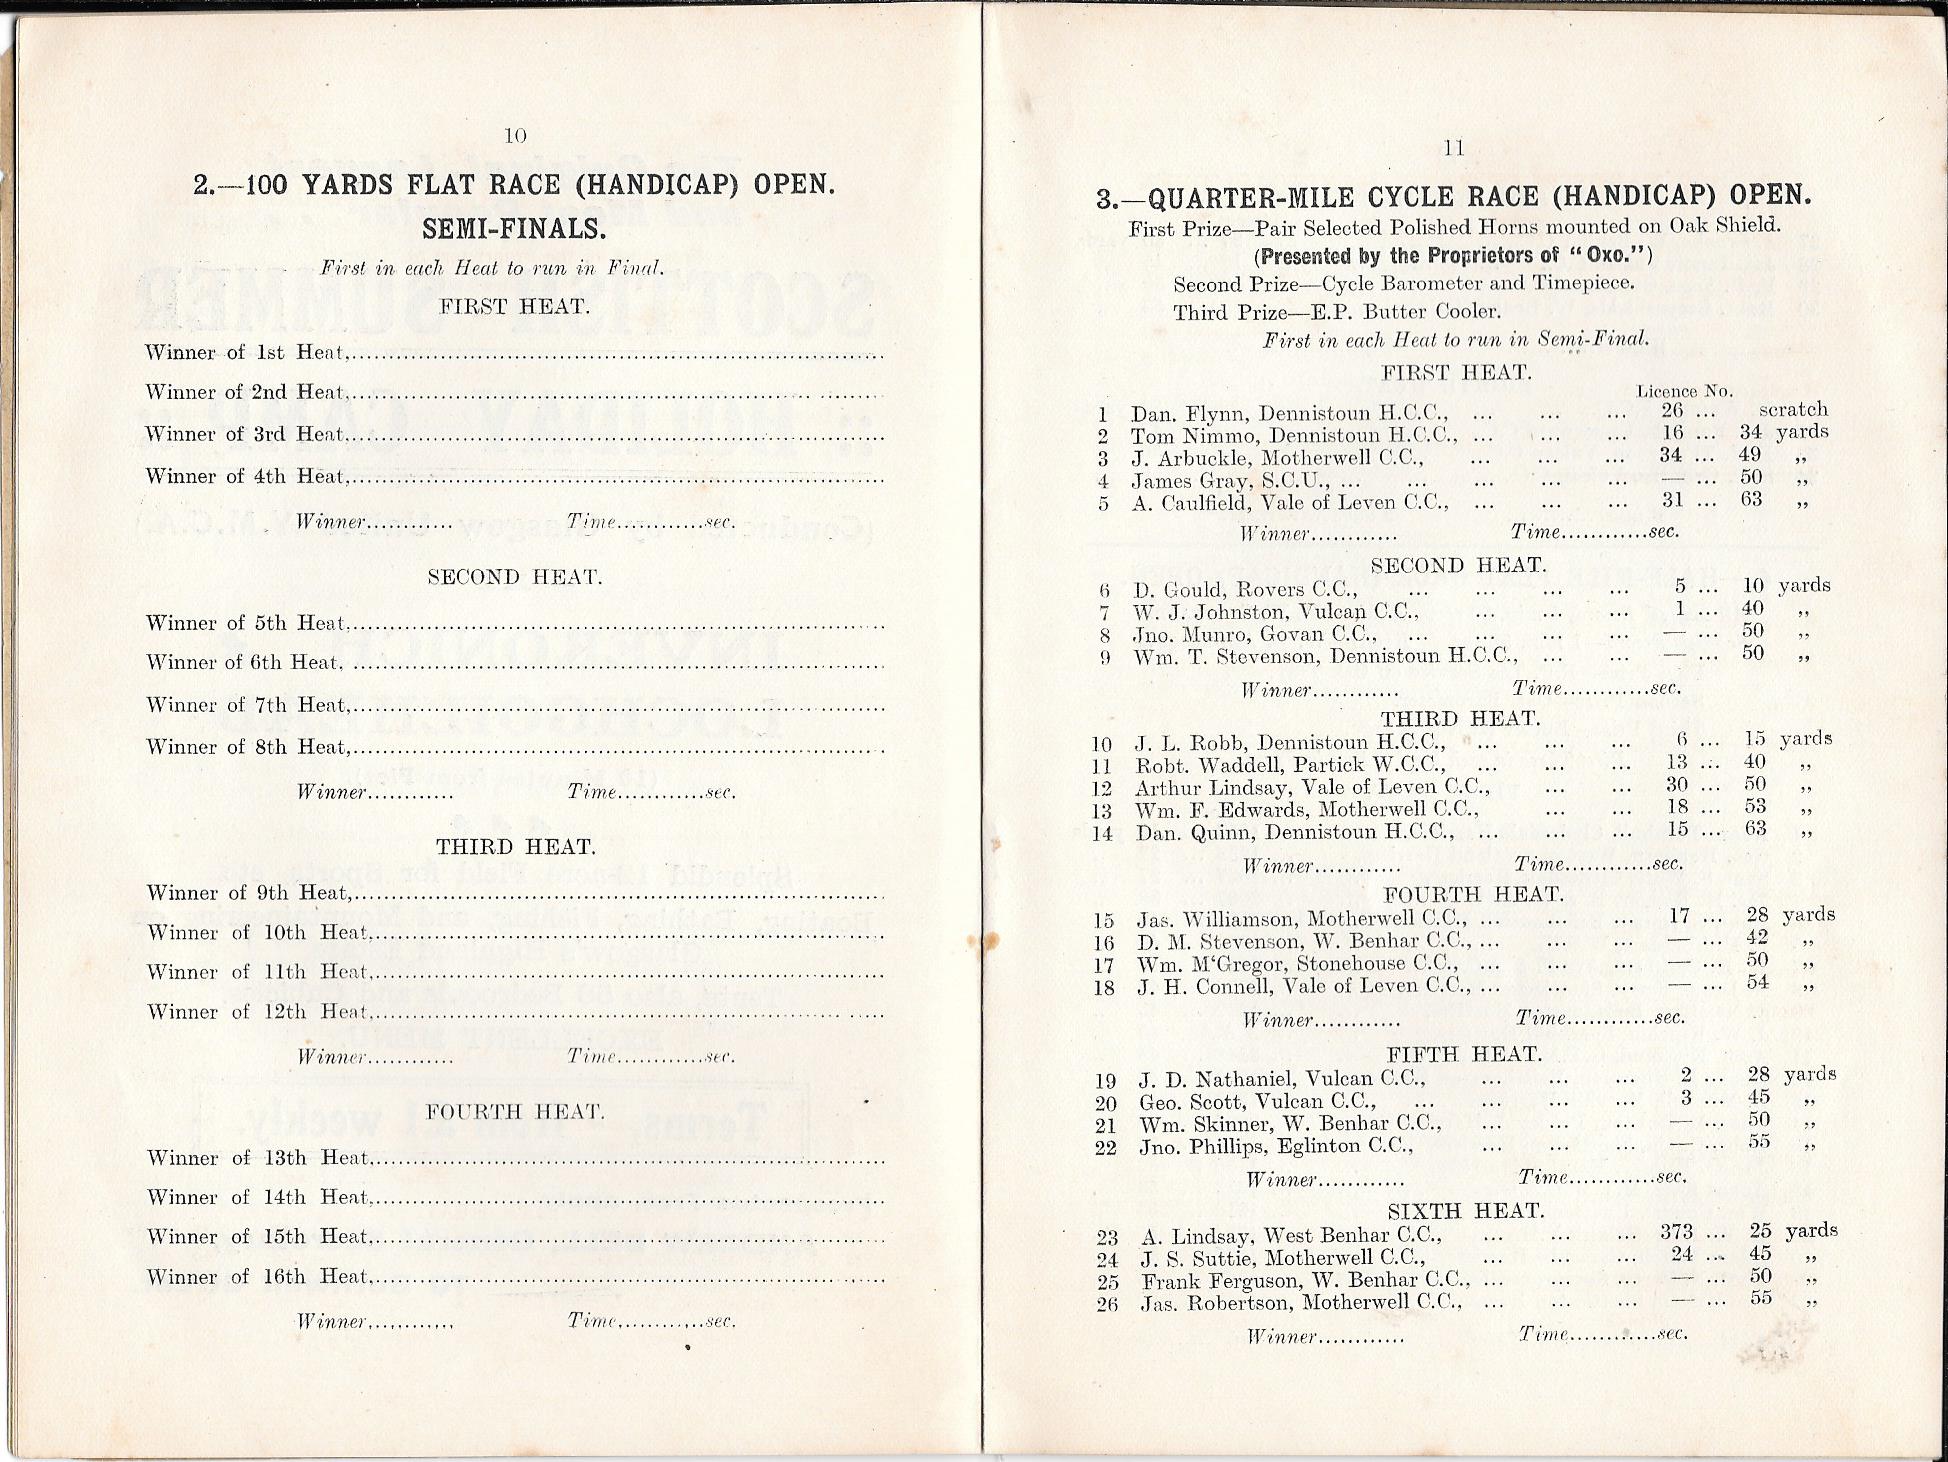 10
2.—100 YARDS FLAT RACE (HANDICAP) OPEN.
SEMI-FINALS.
First in each Heat to run in Final.
FIRST HEAT.
Winner of 1st Heat,..........
Winner of 2nd Heat,..........
Winner of 3rd Heat,..........
Winner of 4th Heat,..........
Winner............ Time............sec.
SECOND HEAT.
Winner of 5th Heat,..........
Winner of 6th Heat, ..........
Winner of 7th Heat,..........
Winner of 8th Heat,..........
Winner............ Time............sec.
THIRD HEAT.
Winner of 9th Heat,..........
Winner of 10th Heat,..........
Winner of 11th Heat,..........
Winner of 12th Heat,..........
Winner............ Time............sec.
FOURTH HEAT.
Winner of 13th Heat,..........
Winner of 14th Heat,..........
Winner of 15th Heat,..........
Winner of 16th Heat,..........
Winner............ Time............sec.
11
3.—QUARTER-MILE CYCLE RACE (HANDICAP) OPEN.
First Prize—Pair Selected Polished Horns mounted on Oak Shield.
(Presented by the Proprietors of "Oxo.")
Second Prize—Cycle Barometer and Timepiece.
Third Prize—E.P. Butter Cooler.
First in each Heat to run in Semi-Final.
FIRST HEAT.
Licence No.
1 Dan. Flynn, Dennistoun H.C.C., ... ... ... 26 ... scratch
2 Tom Nimmo, Dennistoun H.C.C., ... ... ... 16 ... 34 yards
3 J. Arbuckle, Motherwell C.C., ... ... ... 34 ... 49 „
4 James Gray, S.C.U., ... ... ... ... ... — ... 50 „
5 A. Caulfield, Vale of Leven C.C., ... ... ... 31 ... 63 „
Winner............ Time............sec.
SECOND HEAT.
6 D. Gould, Rovers C.C., ... ... ... ... 5 ... 10 yards
7 W. J. Johnston, Vulcan C.C., ... ... ... 1 ... 40 „
8 Jno. Munro, Govan C.C., ... ... ... ... — ... 50 „
9 Wm. T. Stevenson, Dennistoun H.C.C., ... ... — ... 50 „
Winner............ Time............sec.
THIRD HEAT.
10 J. L. Robb, Dennistoun H.C.C., ... ... ... 6 ... 15 yards
11 Robt. Waddell, Partick W.C.C., ... ... ... 13 ... 40 „
12 Arthur Lindsay, Vale of Leven C.C., ... ... 30 ... 50 „
13 Wm. F. Edwards, Motherwell C.C., ... ... 18 ... 53 „
14 Dan. Quinn, Dennistoun H.C.C., ... ... ... 15 ... 63 „
Winner............ Time............sec.
FOURTH HEAT.
15 Jas. Williamson, Motherwell C.C., ... ... ... 17 ... 28 yards
16 D. M. Stevenson, W. Benhar C.C., ... ... ... — ... 42 „
17 Wm. M‘Gregor, Stonehouse C.C., ... ... ... — ... 50 „
18 J. H. Connell, Vale of Leven C.C., ... ... ... — ... 54 „
Winner............ Time............sec.
FIFTH HEAT.
19 J. D. Nathaniel, Vulcan C.C., ... ... ... 2 ... 28 yards
20 Geo. Scott, Vulcan C.C., ... ... ... ... 3 ... 45 „
21 Wm. Skinner, W. Benhar C.C., ... ... ... — ... 50 „
22 Jno. Phillips, Eglinton C.C., ... ... ... — ... 55 „
Winner............ Time............sec.
SIXTH HEAT.
23 A. Lindsay, West Benhar C.C., ... ... ... 373 ... 25 yards
24 J. S. Suttie, Motherwell C.C., ... ... ... 24 ... 45 „
25 Frank Ferguson, W. Benhar C.C., ... ... ... — ... 50 „
26 Jas. Robertson, Motherwell C.C., ... ... ... — ... 55 „
Winner............ Time............sec.